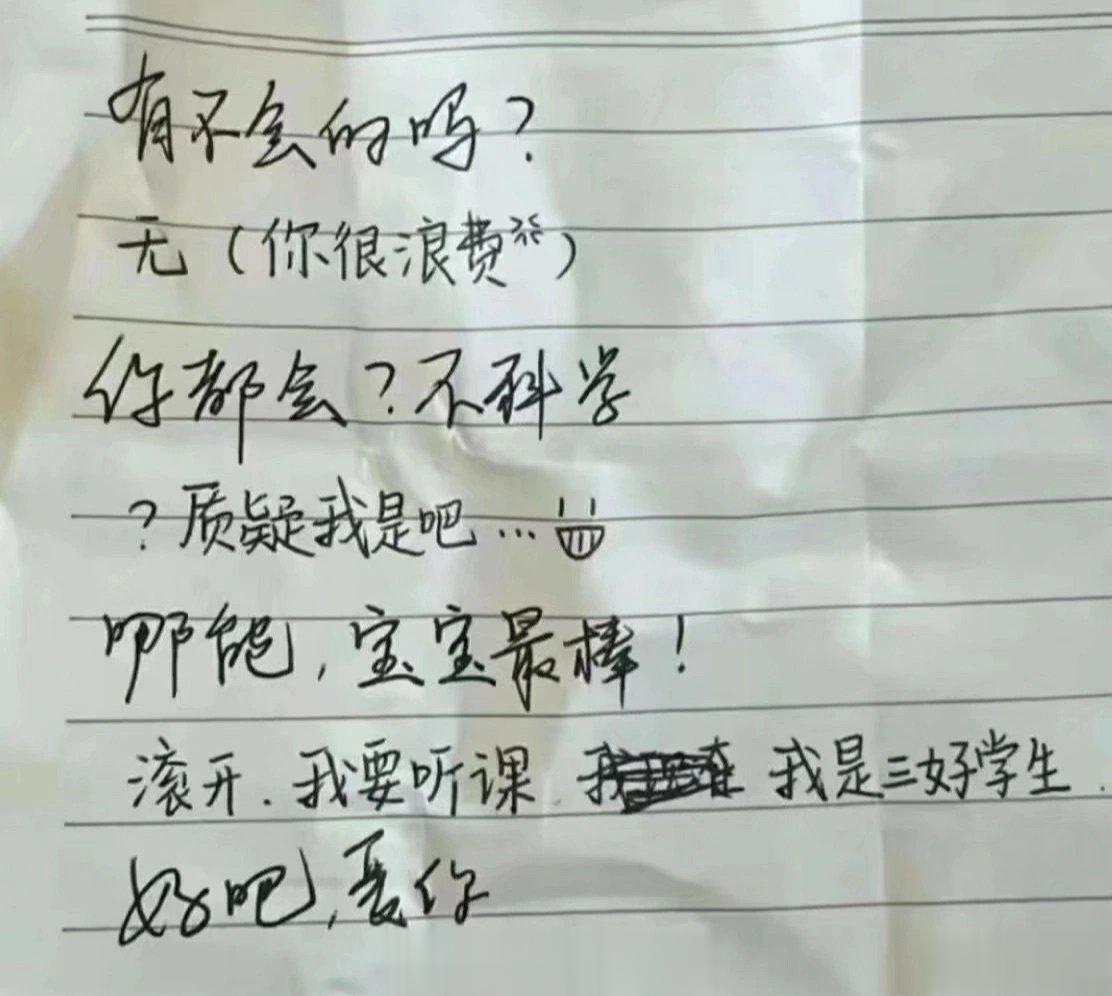 有不会的吗？
无（你很浪费）
你都会？不科学
？质疑我是吧…
哪能，宝宝最棒！
滚开.我要听课.我 我是三好学生.
好吧，爱你